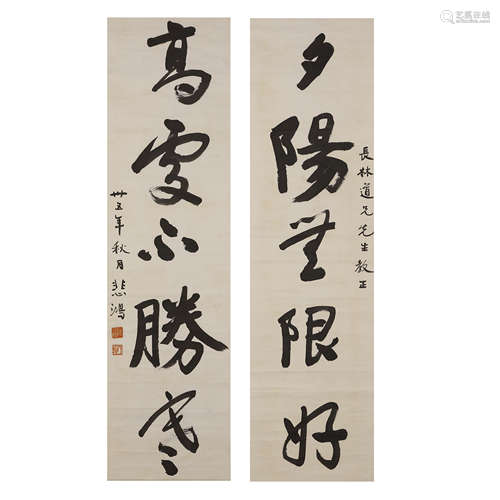 夕陽無限好
長林道兄先生教正
高處不勝寒
卅五年秋月
悲鴻